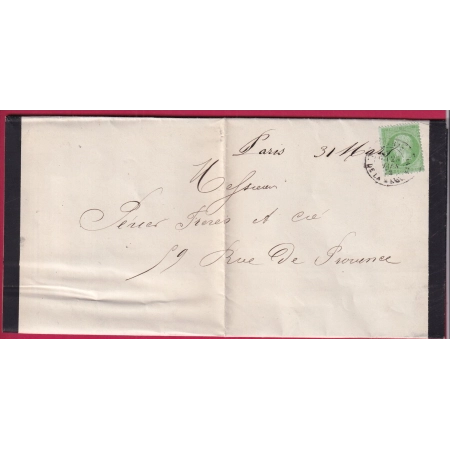 Paris 31 Mars
Messieurs
Périer Frères et Cie
59 Rue de Provence
DE LA